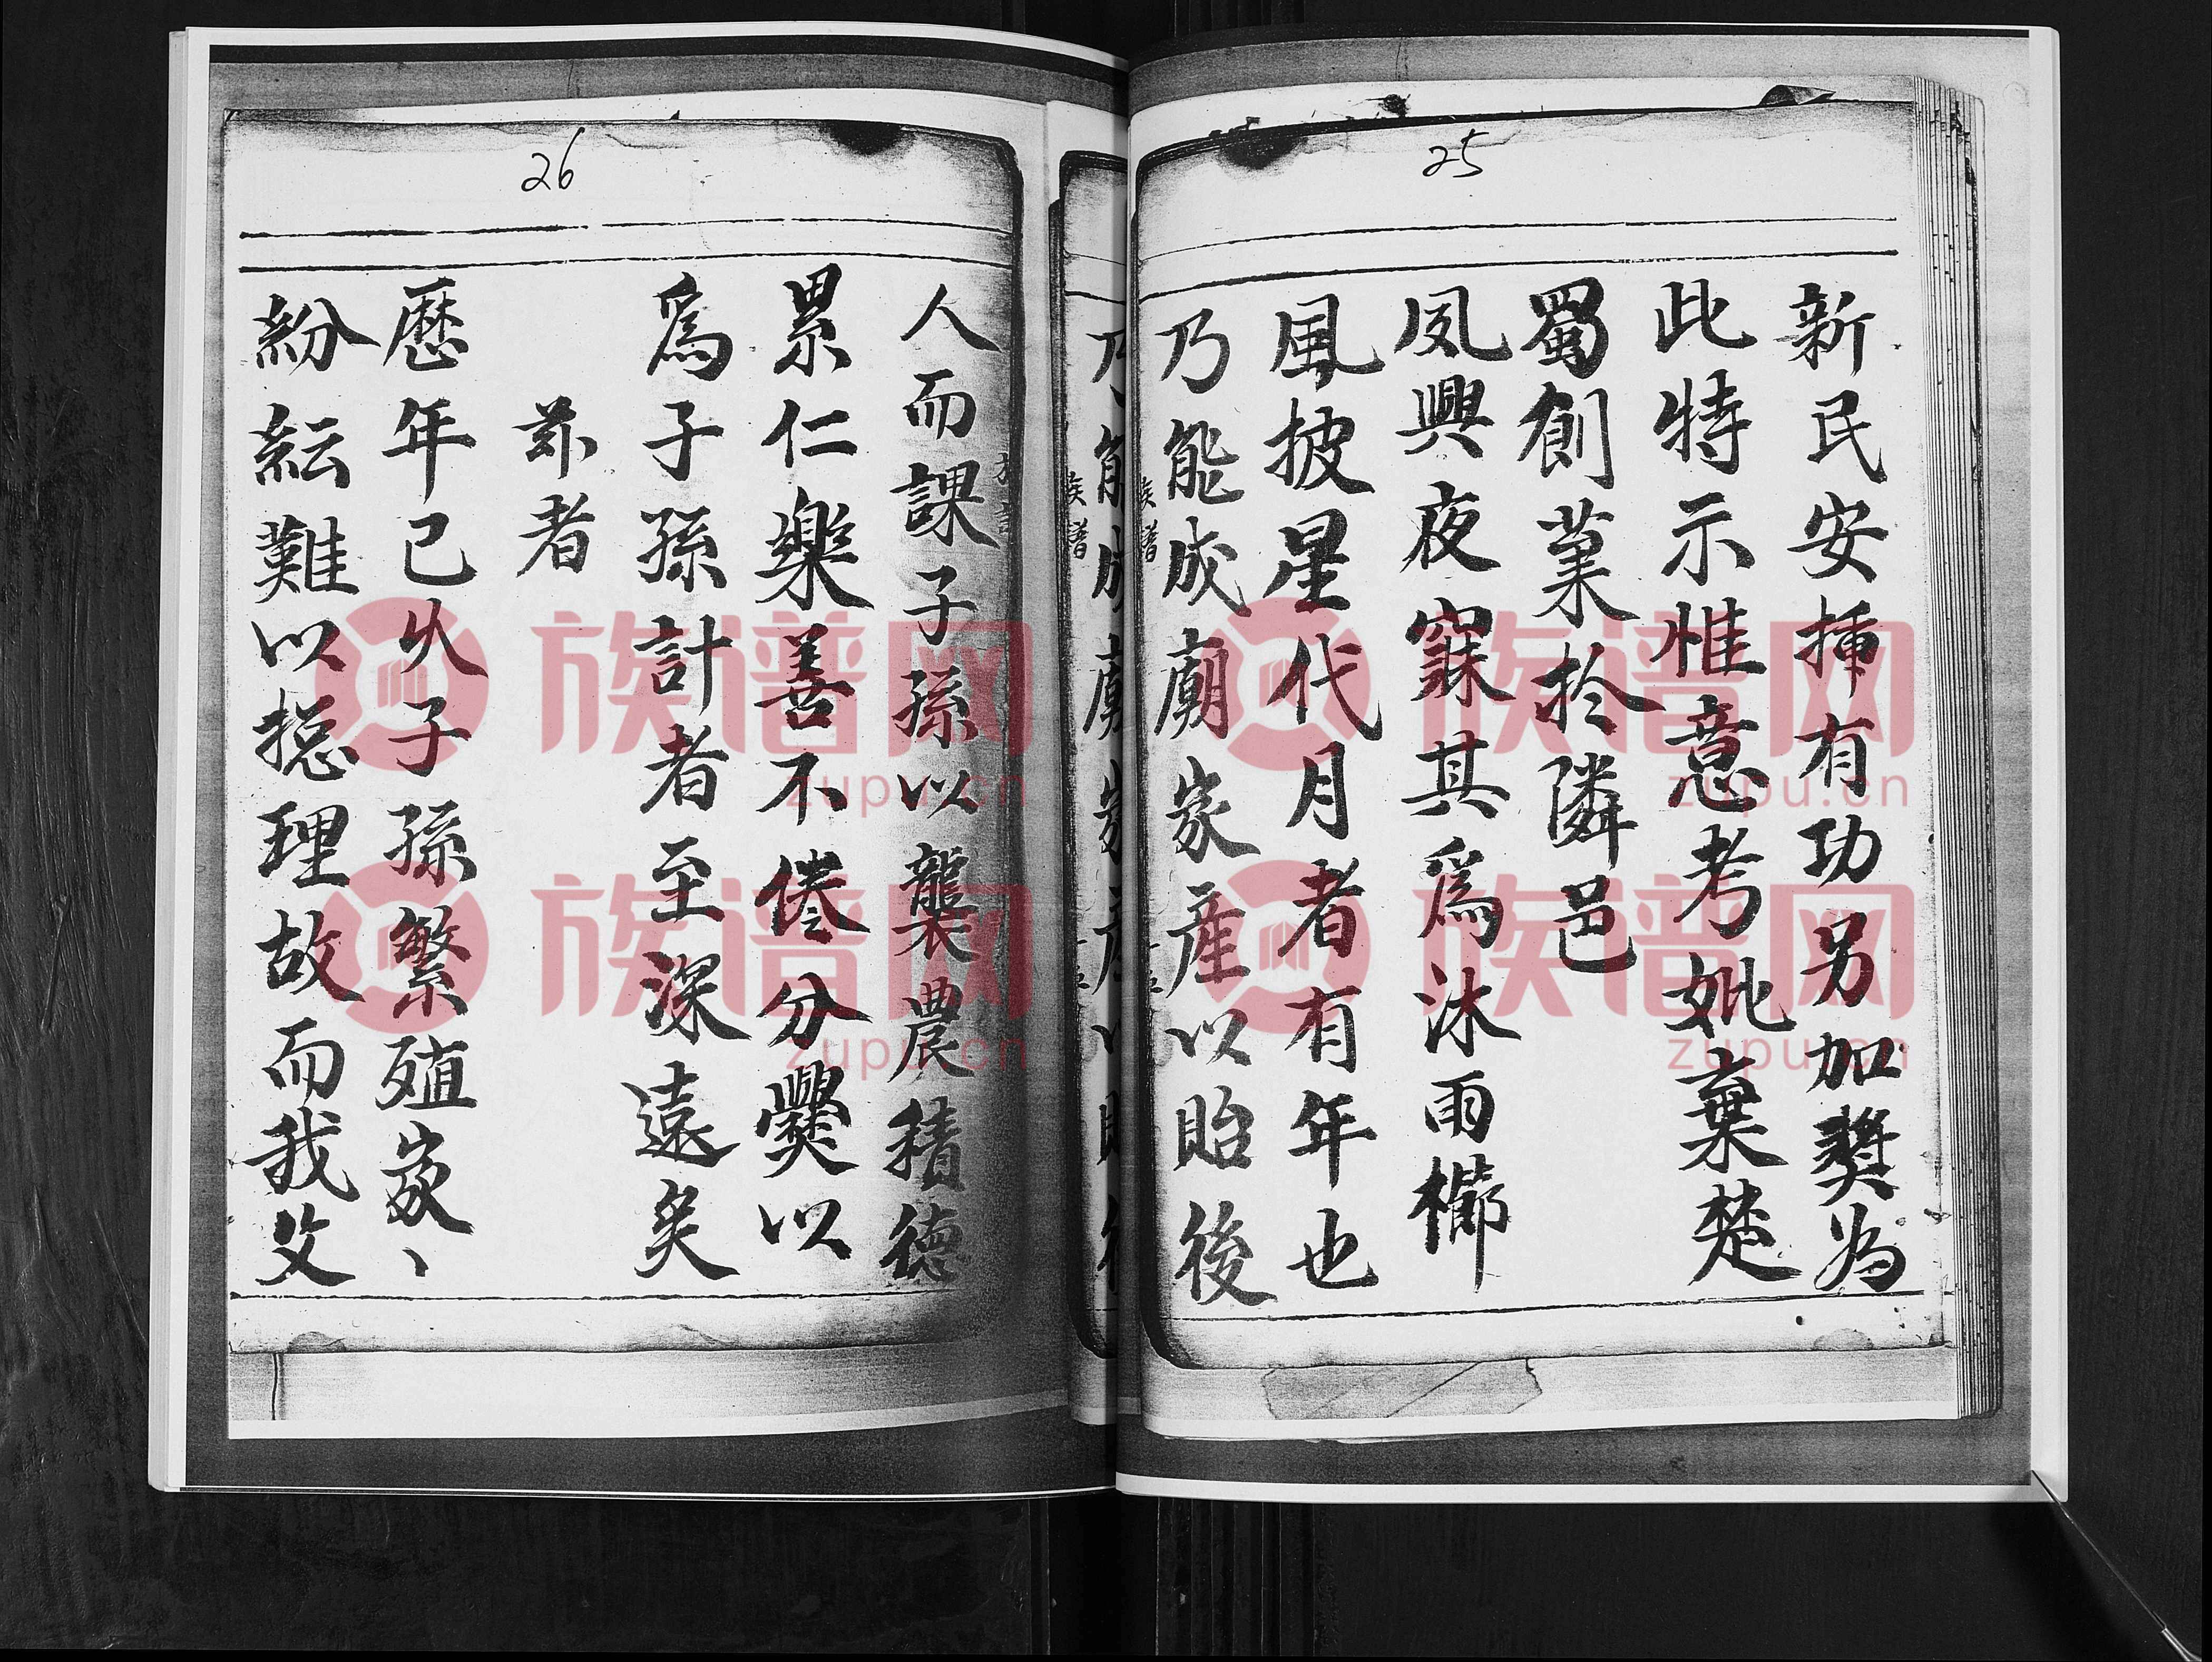 25
新民安揷有功另加奬为
此特示惟意考妣棄楚
蜀創業扵隣邑
夙興夜寐其爲沐雨櫛
風披星代月者有年也
乃能成廟家産以貽後
族譜
26
人而課子孫以襲農積德
累仁樂善不倦分爨以
爲子孫計者至深遠矣
茶者
歷年已久子孫繁殖家、
紛紜難以摠理故而我父
族谱网
zupu.cn
族谱网
zupu.cn
族谱网
zupu.cn
族谱网
zupu.cn